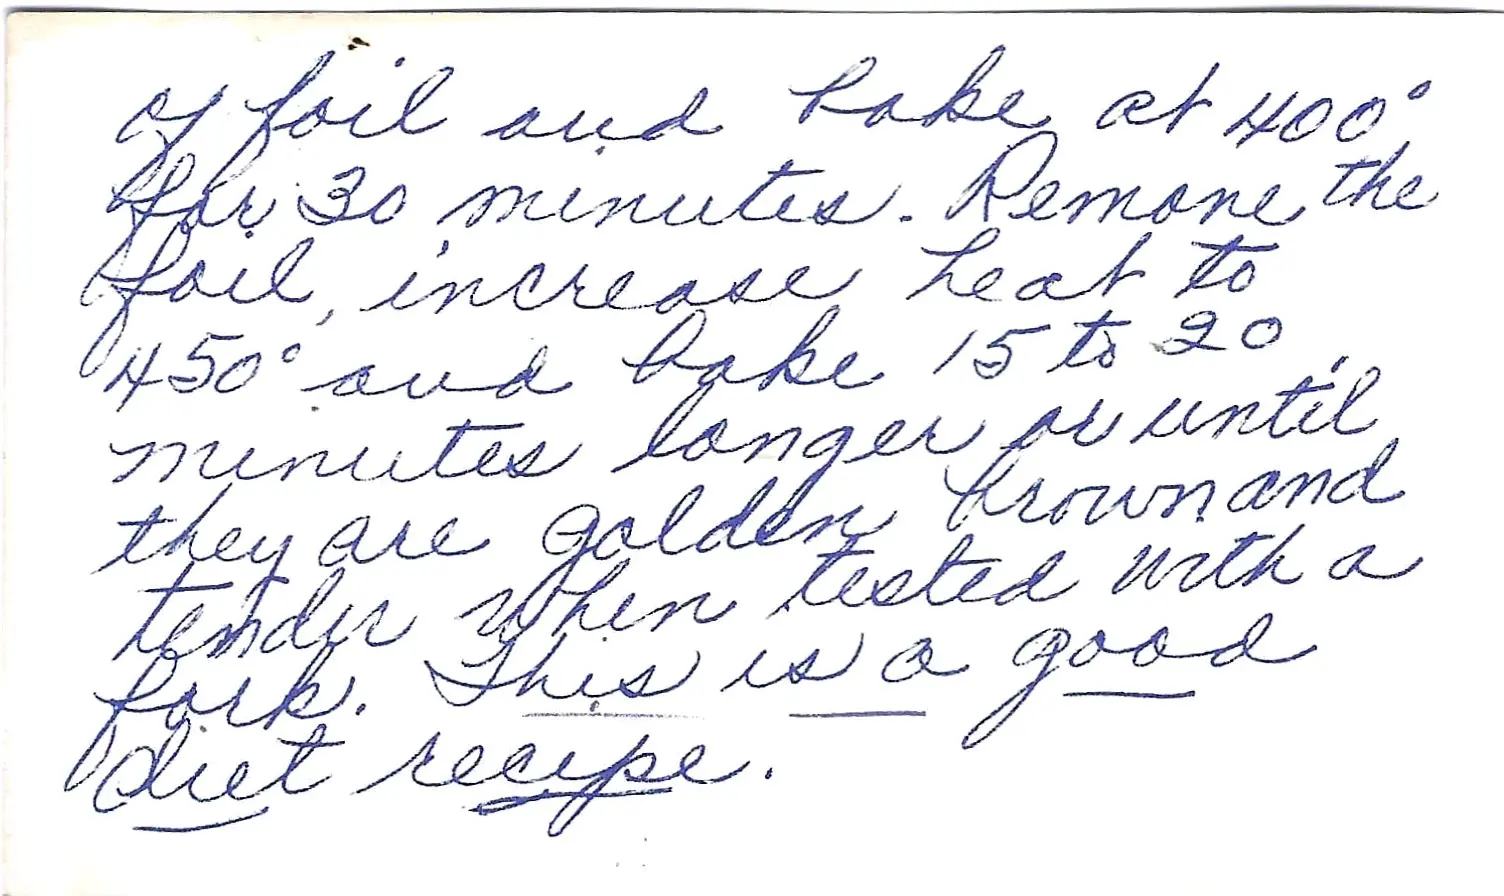 of foil and bake at 400°
for 30 minutes. Remove the
foil, increase heat to
450° and bake 15 to 20
minutes longer or until
they are golden brown and
tender when tested with a
fork. This is a good
diet recipe.